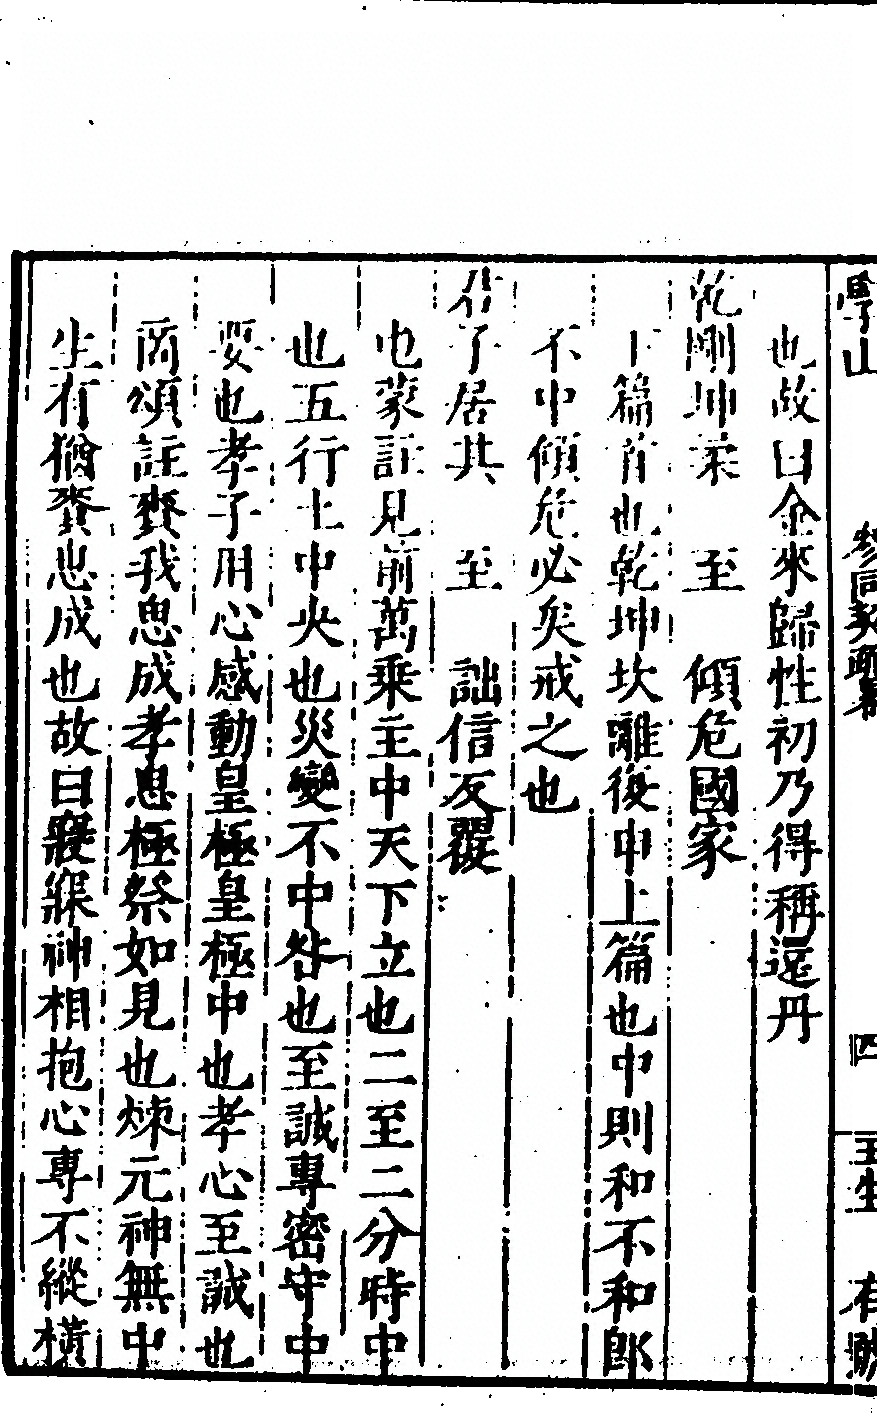 學山 參同契疏畧 四 王生
也故曰金來歸性初乃得稱還丹
乾剛坤柔 至 傾危國家
下篇首也乾坤坎離復申上篇也中則和不和即
不中傾危必矣戒之也
君子居其 至 詘信反覆
屯蒙註見前萬乘主中天下立也二至二分時中
也五行土中央也災變不中咎也至誠專密守中
要也孝子用心感動皇極皇極中也孝心至誠也
商頌註賚我思成孝思極祭如見也煉元神無中
生有猶賚思成也故曰寢寐神相抱心專不縱橫